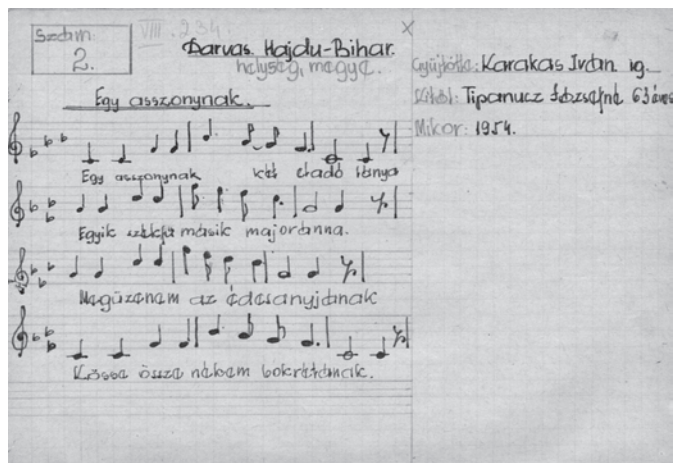 Szám:
2.
VIII. 234.
Darvas. Hajdu-Bihar.
helység, megye.
Egy asszonynak.
Gyűjtötte: Karakas Iván ig.
Kitől: Tipanucz Józsefné 63 éves
Mikor: 1954.
Egy asszonynak két eladó lánya
Egyik szekfű másik majoránna.
Megüzenem az édesanyjának
Kösse össze nékem bokrétának.